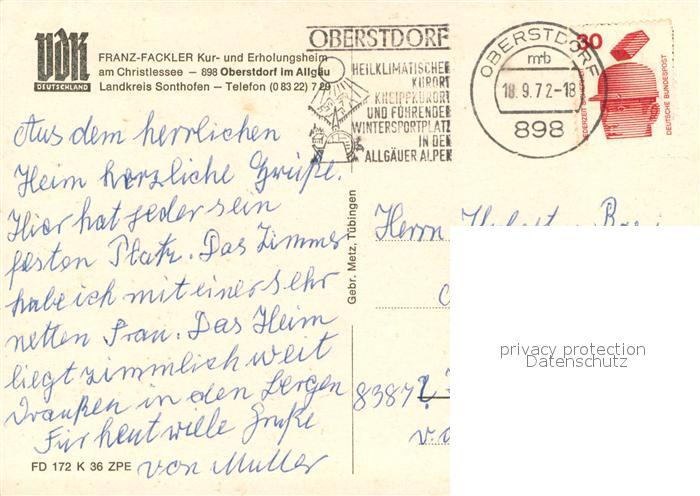 VDK
DEUTSCHLAND
FRANZ-FACKLER Kur- und Erholungsheim
am Christlessee – 898 Oberstdorf im Allgäu
Landkreis Sonthofen – Telefon (0 83 22) 7 29
OBERSTDORF
HEILKLIMATISCHER
KURORT
KNEIPPKURORT
UND FÜHRENDER
WINTERSPORTPLATZ
IN DEN
ALLGÄUER ALPEN
OBERSTDORF
mb
18.9.72-18
898
30
JEDERZEIT SICHERHEIT
DEUTSCHE BUNDESPOST
Aus dem herrlichen
Heim herzliche Grüße.
Hier hat jeder sein
festen Platz. Das Zimmer
habe ich mit einer sehr
netten Frau. Das Heim
liegt zimmlich weit
draußen in den Bergen
Für heut viele Grüße
von Muller
Gebr. Metz, Tübingen
Herrn
8387
v.
privacy protection
Datenschutz
FD 172 K 36 ZPE